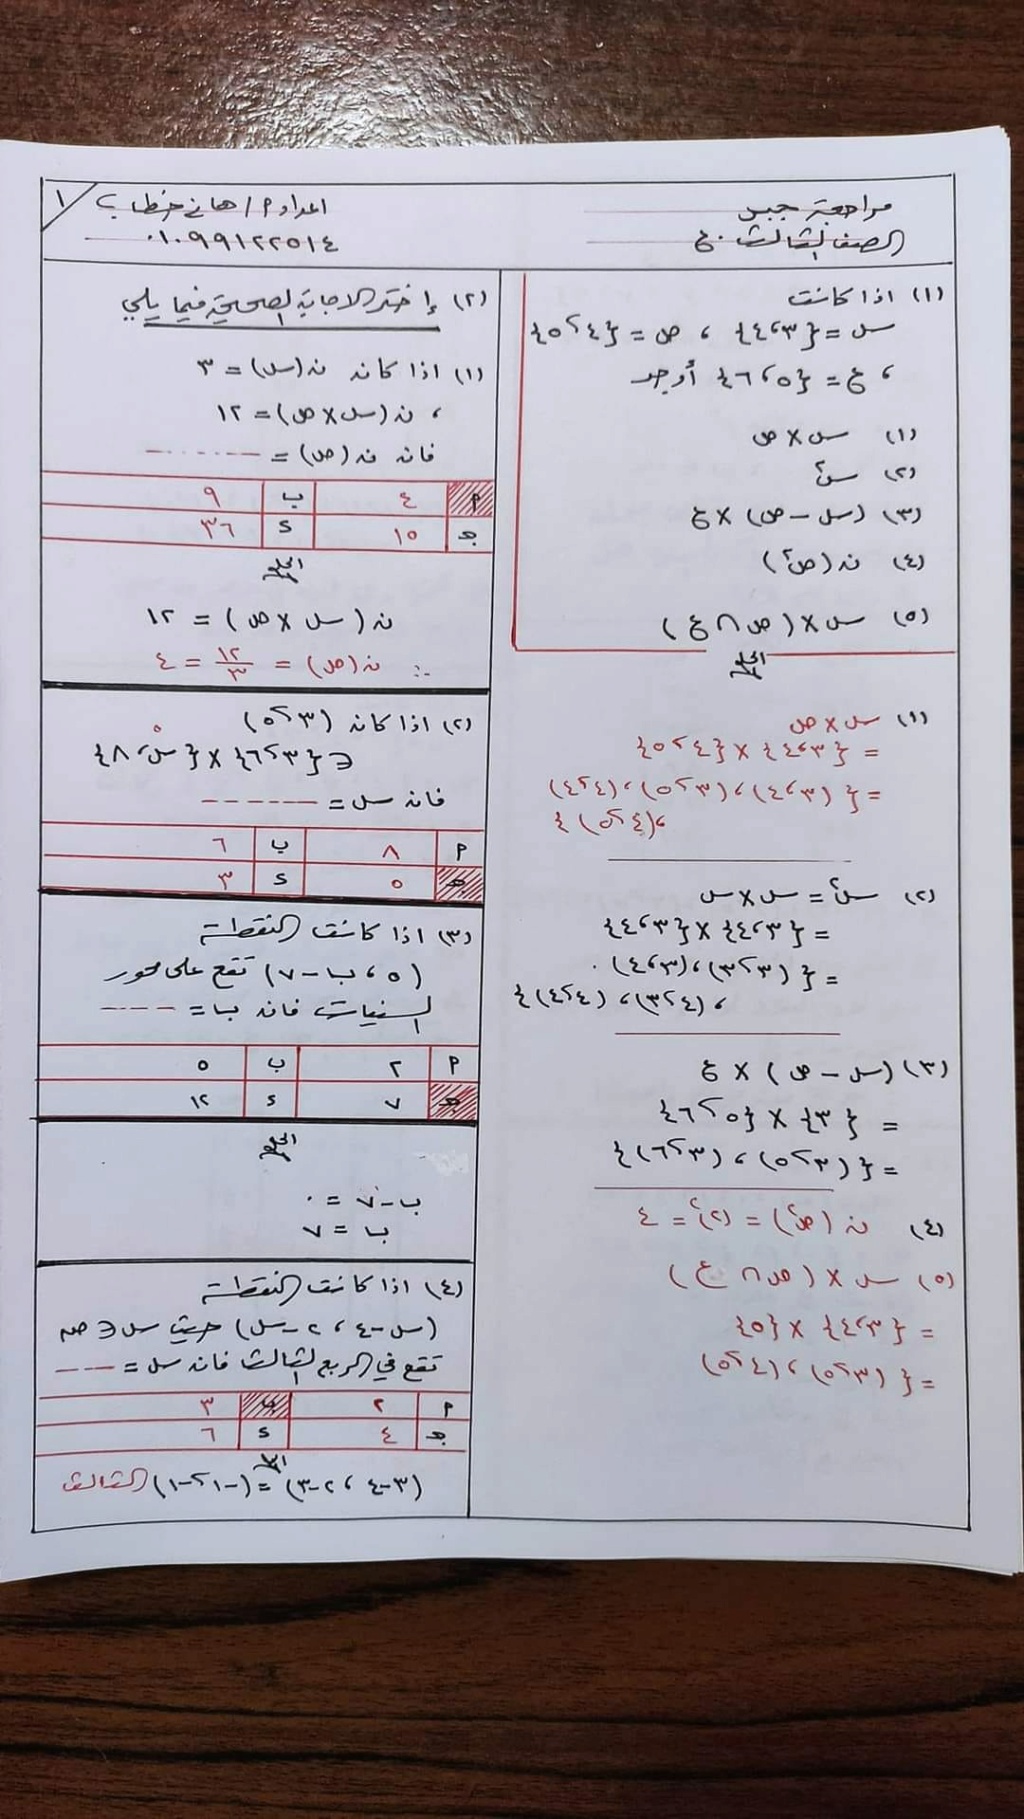 مراجعة جبر
الصف الثالث ع.
اعداد م/ هاني خطاب
٠١٠٩٩١٢٢٥١٤
١
(١) اذا كانت
س = {٣، ٤} ، ص = {٤، ٥}
، ع = {٥، ٦} أوجد
(١) س × ص
(٢) س²
(٣) (س - ص) × ع
(٤) ن (ص²)
(٥) س × (ص ∩ ع)
الحل
(١) س × ص
= {٣، ٤} × {٤، ٥}
= { (٣، ٤)، (٣، ٥)، (٤، ٤)
، (٤، ٥) }
(٢) س² = س × س
= {٣، ٤} × {٣، ٤}
= { (٣، ٣)، (٣، ٤)
، (٤، ٣)، (٤، ٤) }
(٣) (س - ص) × ع
= {٣} × {٥، ٦}
= { (٣، ٥)، (٣، ٦) }
(٤) ن (ص²) = (٢)² = ٤
(٥) س × (ص ∩ ع)
= {٣، ٤} × {٥}
= { (٣، ٥)، (٤، ٥)
(٢) إختر الاجابة الصحيحة فيما يلي
(١) اذا كان ن(س) = ٣
، ن (س × ص) = ١٢
فان ن (ص) = ------
م ٤ ب ٩
جـ ١٥ د ٣٦
الحل
ن (س × ص) = ١٢
∴ ن (ص) = ١٢/٣ = ٤
(٢) اذا كان (٣، ٥)
∈ {٣، ٦} × {س، ٨}
٥
فان س = ------
م ٨ ب ٦
جـ ٥ د ٣
(٣) اذا كانت النقطة
(٥، ب - ٧) تقع على محور
السينات فان ب = ----
م ٢ ب ٥
جـ ٧ د ١٢
الحل
ب - ٧ = ٠
ب = ٧
(٤) اذا كانت النقطة
(س - ٤ ، ٢ - س) حيث س ∈ صـ
تقع في الربع الثالث فان س = ----
م ٢ ب ٣
جـ ٤ د ٦
الحل
(٣-٤ ، ٢-٣) = (-١، -١) الثالث